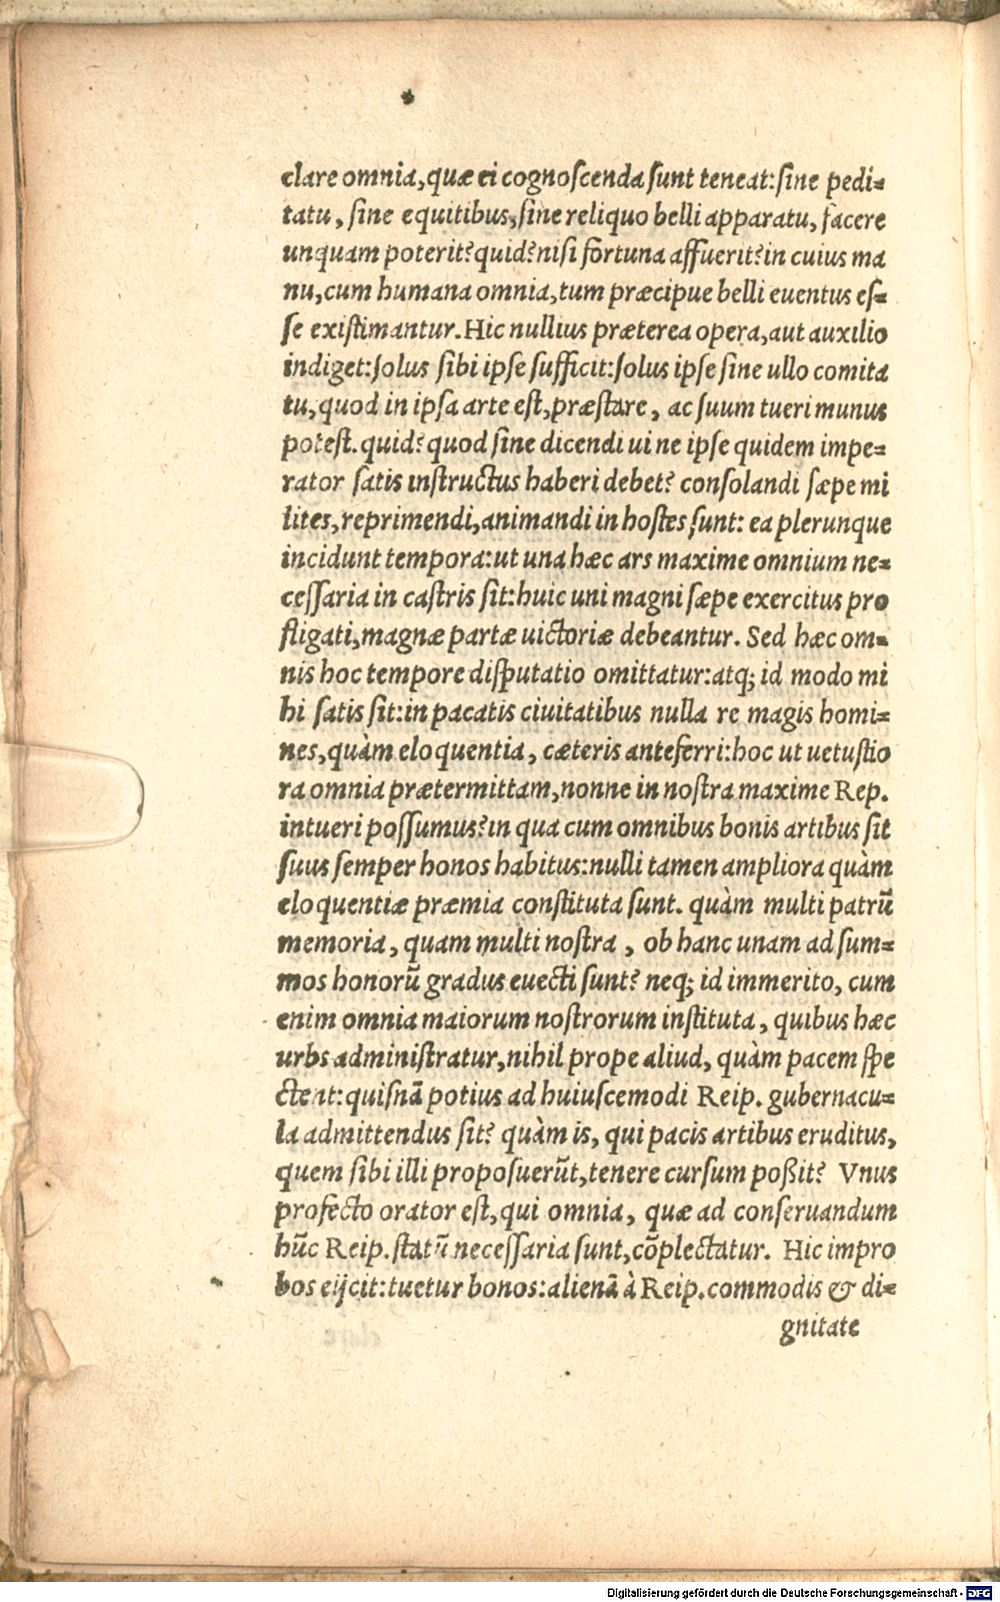 clare omnia, quæ ei cognoscenda sunt teneat: sine pedi=
tatu, sine equitibus, sine reliquo belli apparatu, facere
unquam poterit? quid? nisi fortuna affuerit? in cuius ma
nu, cum humana omnia, tum præcipue belli euentus es=
se existimantur. Hic nullius præterea opera, aut auxilio
indiget: solus sibi ipse sufficit: solus ipse sine ullo comita
tu, quod in ipsa arte est, præstare, ac suum tueri munus
potest. quid? quod sine dicendi ui ne ipse quidem impe=
rator satis instructus haberi debet? consolandi sæpe mi
lites, reprimendi, animandi in hostes sunt: ea plerunque
incidunt tempora: ut una hæc ars maxime omnium ne=
cessaria in castris sit: huic uni magni sæpe exercitus pro
fligati, magnæ partæ uictoriæ debeantur. Sed hæc om=
nis hoc tempore disputatio omittatur: atq; id modo mi
hi satis sit: in pacatis ciuitatibus nulla re magis homi=
nes, quàm eloquentia, cæteris anteferri: hoc ut uetustio
ra omnia prætermittam, nonne in nostra maxime Rep.
intueri possumus? in qua cum omnibus bonis artibus sit
suus semper honos habitus: nulli tamen ampliora quàm
eloquentiæ præmia constituta sunt. quàm multi patrũ
memoria, quam multi nostra, ob hanc unam ad sum=
mos honorũ gradus euecti sunt? neq; id immerito, cum
enim omnia maiorum nostrorum instituta, quibus hæc
urbs administratur, nihil prope aliud, quàm pacem spe
ctent: quisnã potius ad huiuscemodi Reip. gubernacu=
la admittendus sit? quàm is, qui pacis artibus eruditus,
quem sibi illi proposuerũt, tenere cursum poßit? Vnus
profecto orator est, qui omnia, quæ ad conseruandum
hũc Reip. statũ necessaria sunt, cõplectatur. Hic impro
bos eijcit: tuetur bonos: alienã à Reip. commodis & di=
gnitate
Digitalisierung gefördert durch die Deutsche Forschungsgemeinschaft - DFG